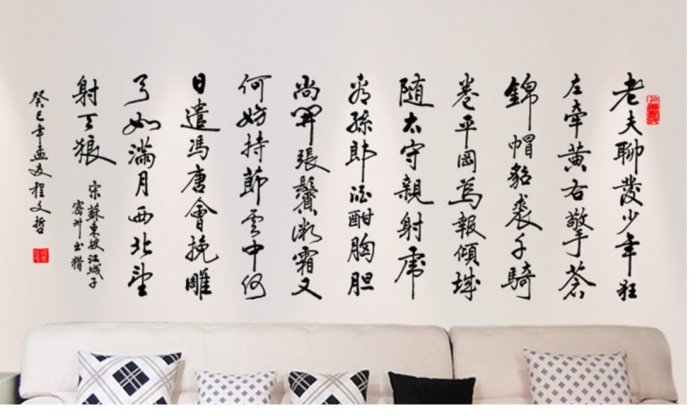 老夫聊發少年狂
左牽黃右擎蒼
錦帽貂裘千騎
卷平岡為報傾城
隨太守親射虎
看孫郎酒酣胸胆
尚開張鬢微霜又
何妨持節雲中何
日遣馮唐會挽雕
弓如滿月西北望
射天狼
宋蘇東坡江城子
密州出猎
癸巳年孟夏程文哲